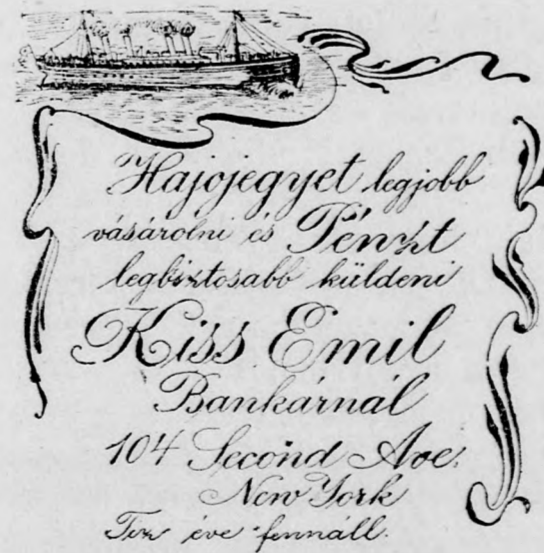 Hajójegyet legjobb
vásárolni és Pénzt
legbiztosabb küldeni
Kiss Emil
Bankárnál
104 Second Ave.
New York
Tiz éve fennáll.